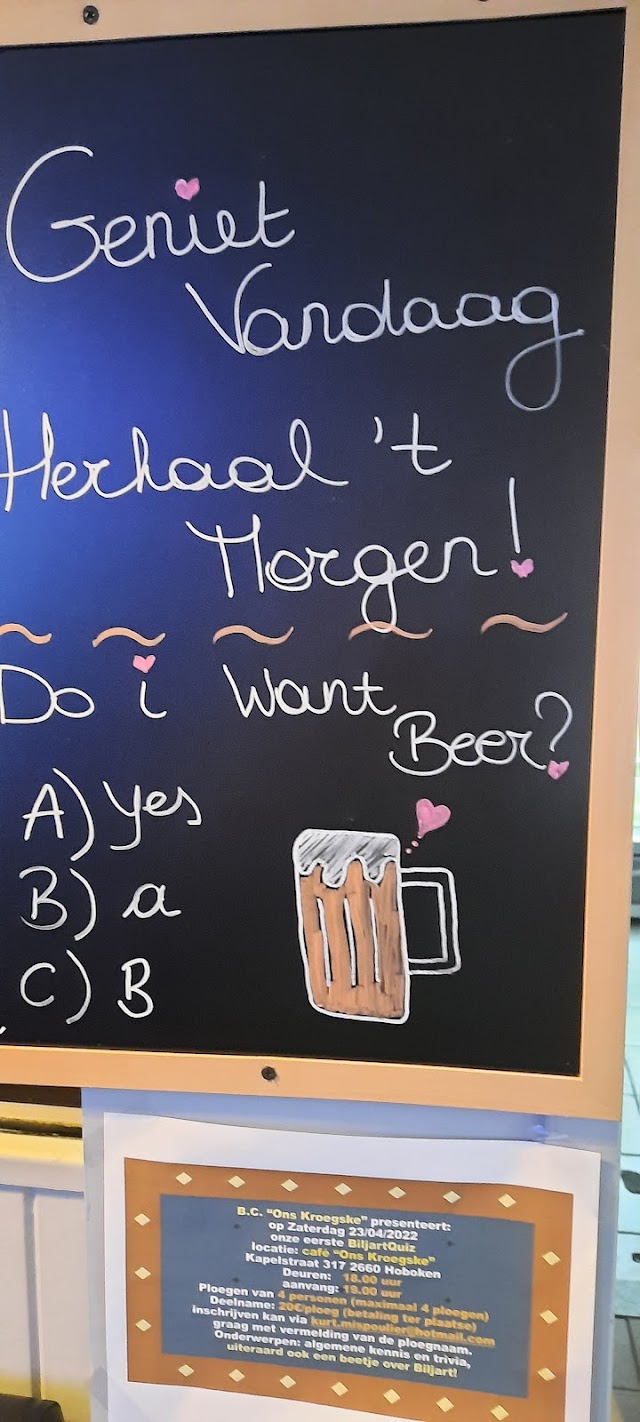 Geniet
Vandaag
Herhaal 't
Morgen!
Do i Want
Beer?
A) yes
B) a
C) B
B.C. "Ons Kroegske" presenteert:
op Zaterdag 23/04/2022
onze eerste BiljartQuiz
locatie: café "Ons Kroegske"
Kapelstraat 317 2660 Hoboken
Deuren: 18.00 uur
aanvang: 19.00 uur
Ploegen van 4 personen (maximaal 4 ploegen)
Deelname: 20€/ploeg (betaling ter plaatse)
inschrijven kan via kurt.mispoulier@hotmail.com
graag met vermelding van de ploegnaam.
Onderwerpen: algemene kennis en trivia,
uiteraard ook een beetje over Biljart!